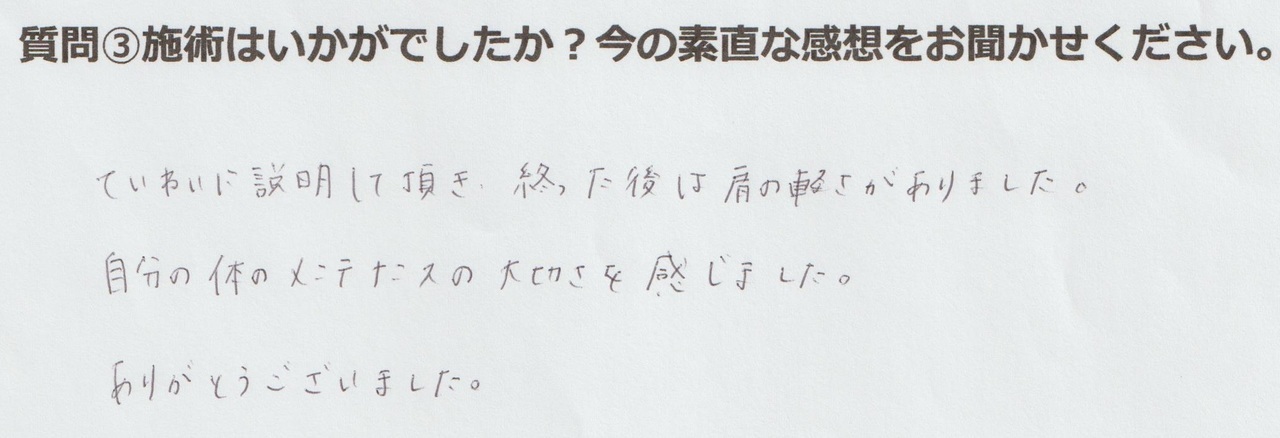 質問③施術はいかがでしたか？今の素直な感想をお聞かせください。
ていねいに説明して頂き、終った後は肩の軽さがありました。
自分の体のメンテナンスの大切さを感じました。
ありがとうございました。